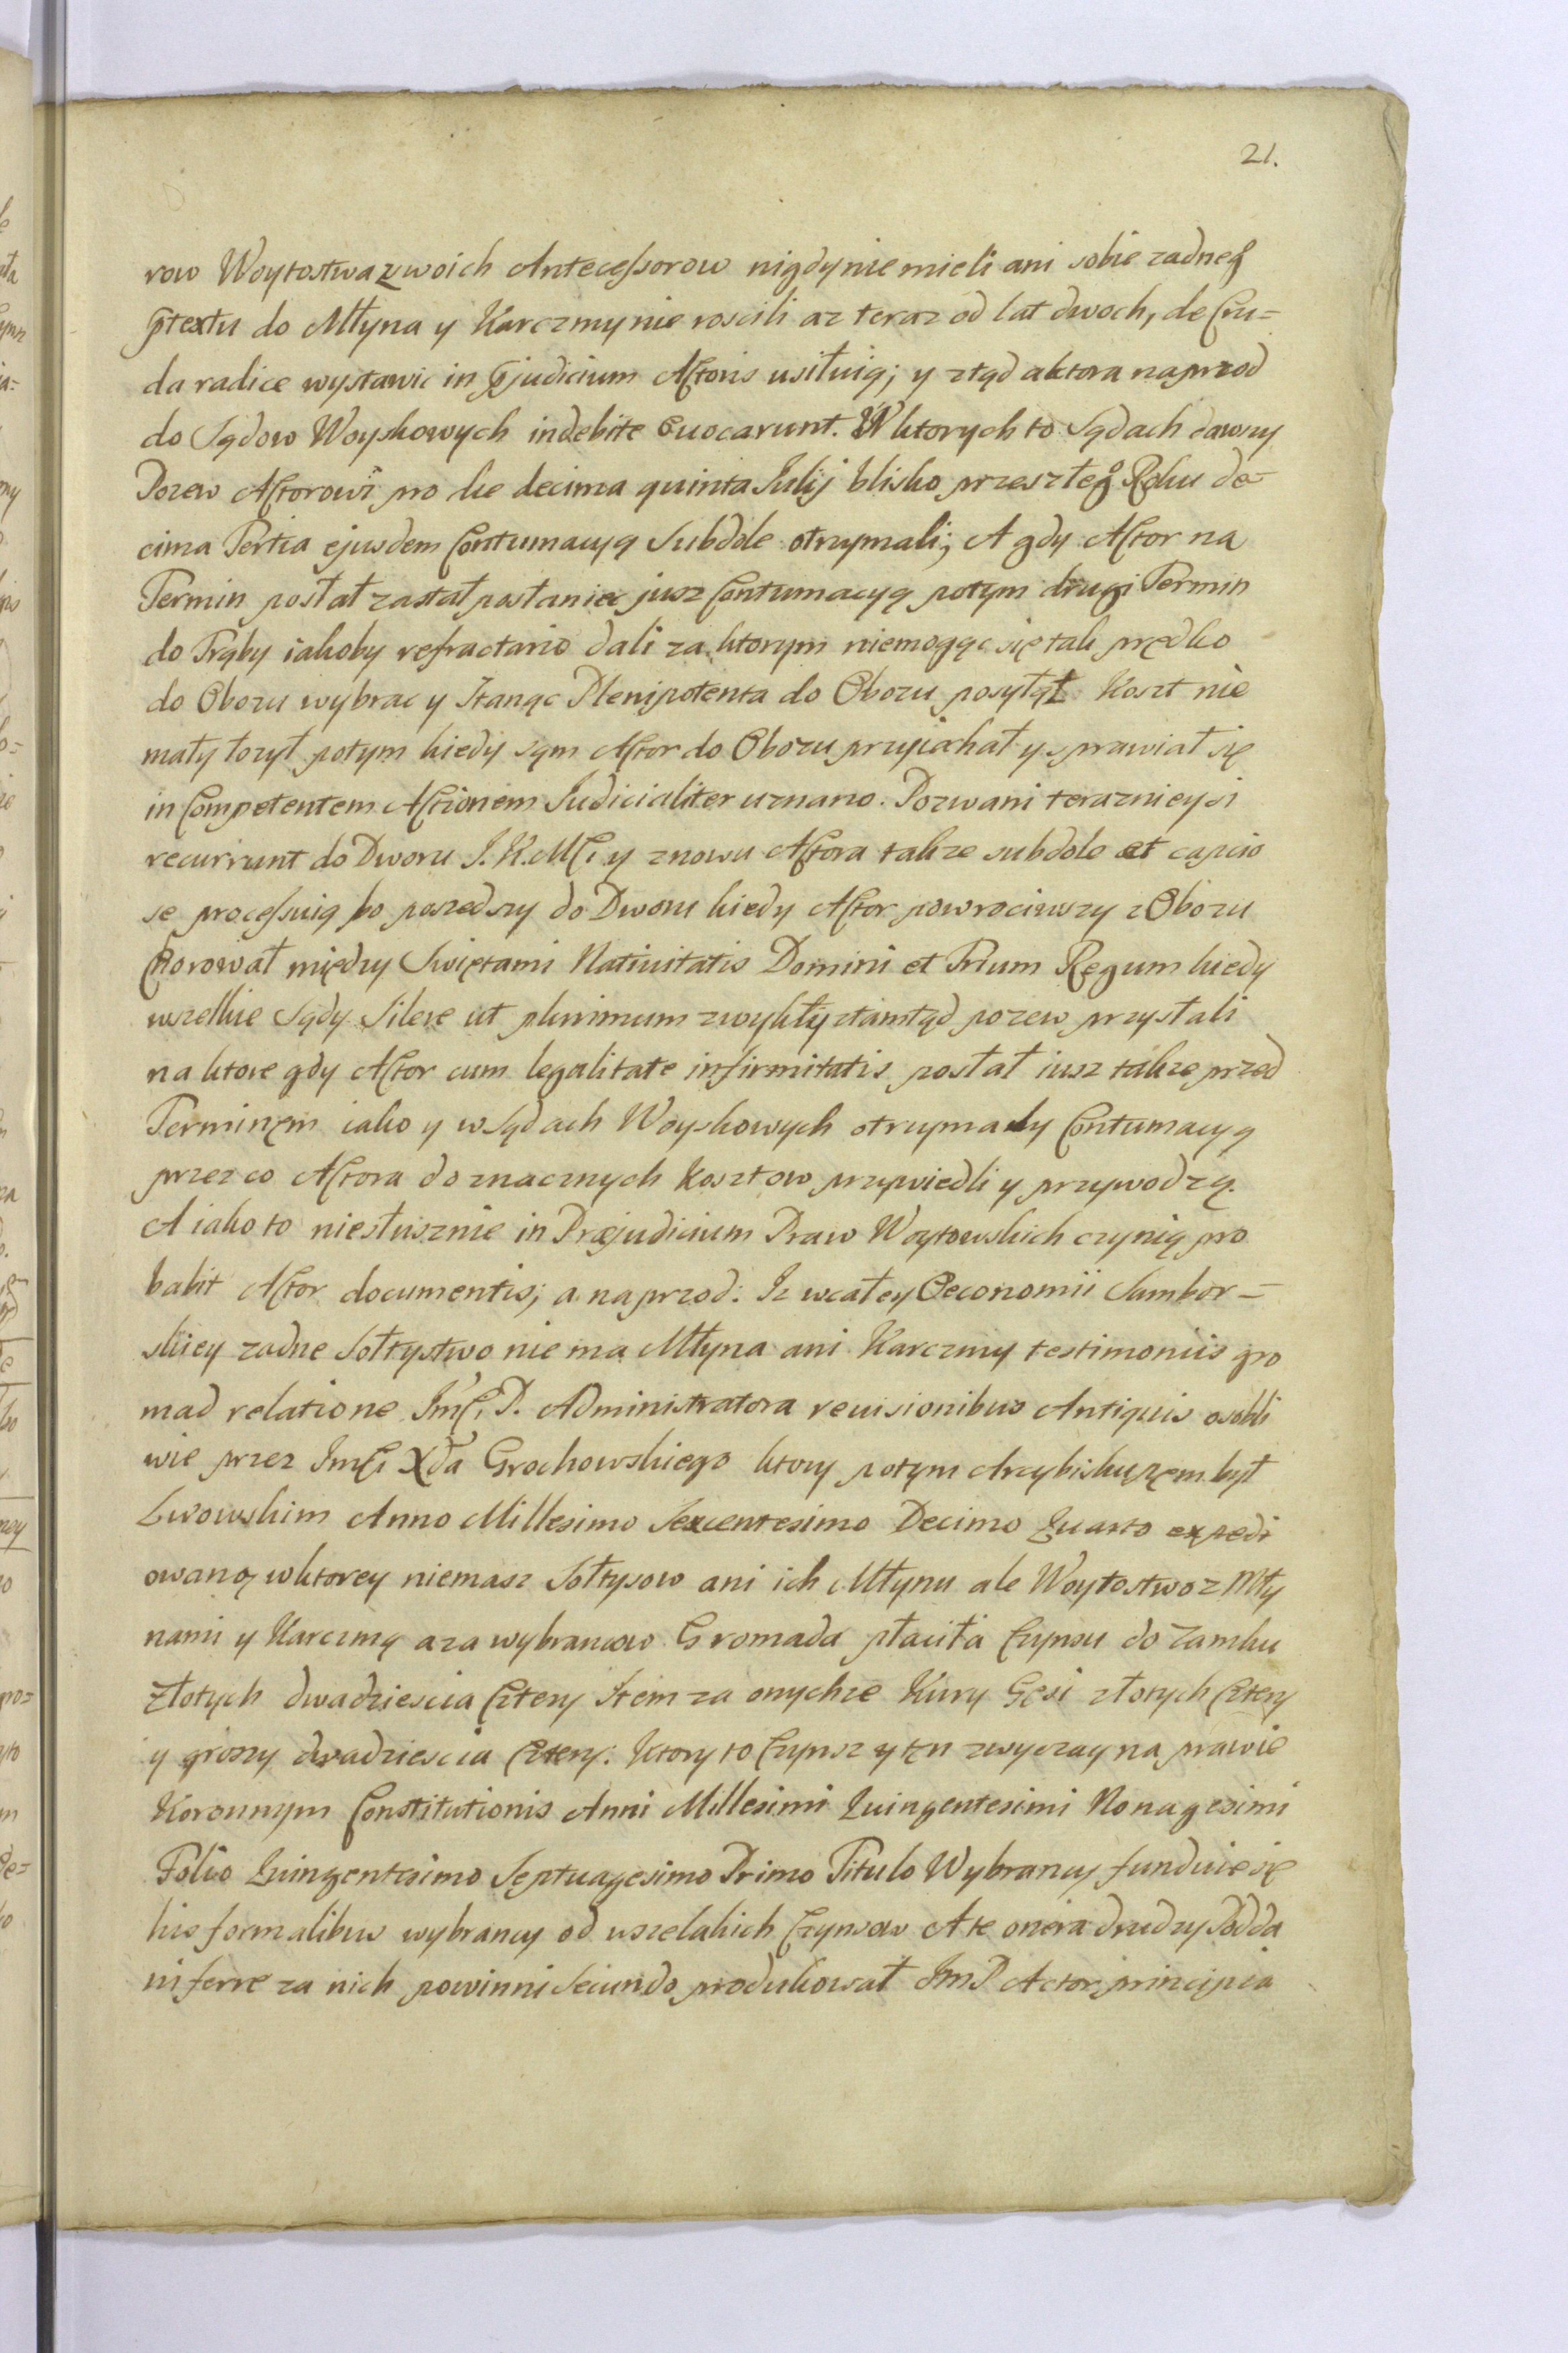 21.
row Woytostwa zwoich Antecessorow nigdy nie mieli ani sobie zadneg
ptextu do Młyna y Karczmy nie roscili az teraz od lat dwoch, de Cru=
da radice wystawic in pjudicium Actoris usiłuią; y ztąd aktora naprzod
do Sądow Woyskowych indebite evocarunt. W ktorych to Sądach dawszy
Pozew Actorowi pro die decima quinta Julij blisko przeszłeg Roku de=
cima Tertia ejusdem Contumacyą Subdole otrzymali; A gdy Actor na
Termin posłał zastał posłaniec jusz Contumacyą potym drugi Termin
do Trąby iakoby refractario dali za ktorym niemogąc się tak prędko
do Obozu wybrac y Stanąc Plenipotenta do Obozu posyłał Koszt nie
mały łozył potym kiedy sąm Actor do Obozu przyiachał y sprawiał się
in Competentem Actionem Judicialiter uznano. Pozwani teraznieysi
recurrunt do Dworu J. K. MCi y znowu Actora takze subdole et capcio
se processuią bo poszedszy do Dworu kiedy Actor powrociwszy z Obozu
Chorował między Swiętami Nativitatis Domini et Trium Regum kiedy
wszelkie Sądy Silere ut plurimum zwykły ztamtąd pozew przysłali
na ktore gdy Actor cum legalitate infirmitatis posłał iusz takze przed
Terminęm iako y w Sądach Woyskowych otrzymały Contumacyą
przez co Actora do znacznych Kosztow przywiedli y przywodzą.
A iako to niesłusznie in Præjudicium Praw Woytowskich czynią pro
babit Actor documentis; a naprzod: Iz wcałey Oeconomii Sambor=
skiey zadne Sołtystwo nie ma Młyna ani Karczmy testimoniis gro
mad relatione ImCi P. Administratora revisionibus Antiquis osobli
wie przez ImCi Xda Grochowskiego ktory potym Arcybiskupęm był
Lwowskim Anno Millesimo Sexcentesimo Decimo Quarto expedi
owaną wktorey niemasz Sołtysow ani ich Młynu ale Woytostwo z Mły
nami y Karczmą a za wybrancow Gromada płaciła Czynsu do Zamku
złotych dwadziescia Cztery Item za onychze Kury Gęsi złotych Cztery
y groszy dwadziescia Cztery. Ktory to Czynsz y tęn zwyczay na prawie
Koronnym Constitutionis Anni Millesimi Quingentesimi Nonagesimi
Folio Quingentesimo Septuagesimo Primo Titulo Wybrancy funduie się
his formalibus wybrancy od wszelakich Czynsow A te onera drudzy Podda
ni ferre za nich powinni Secundo produkował ImP Actor principia